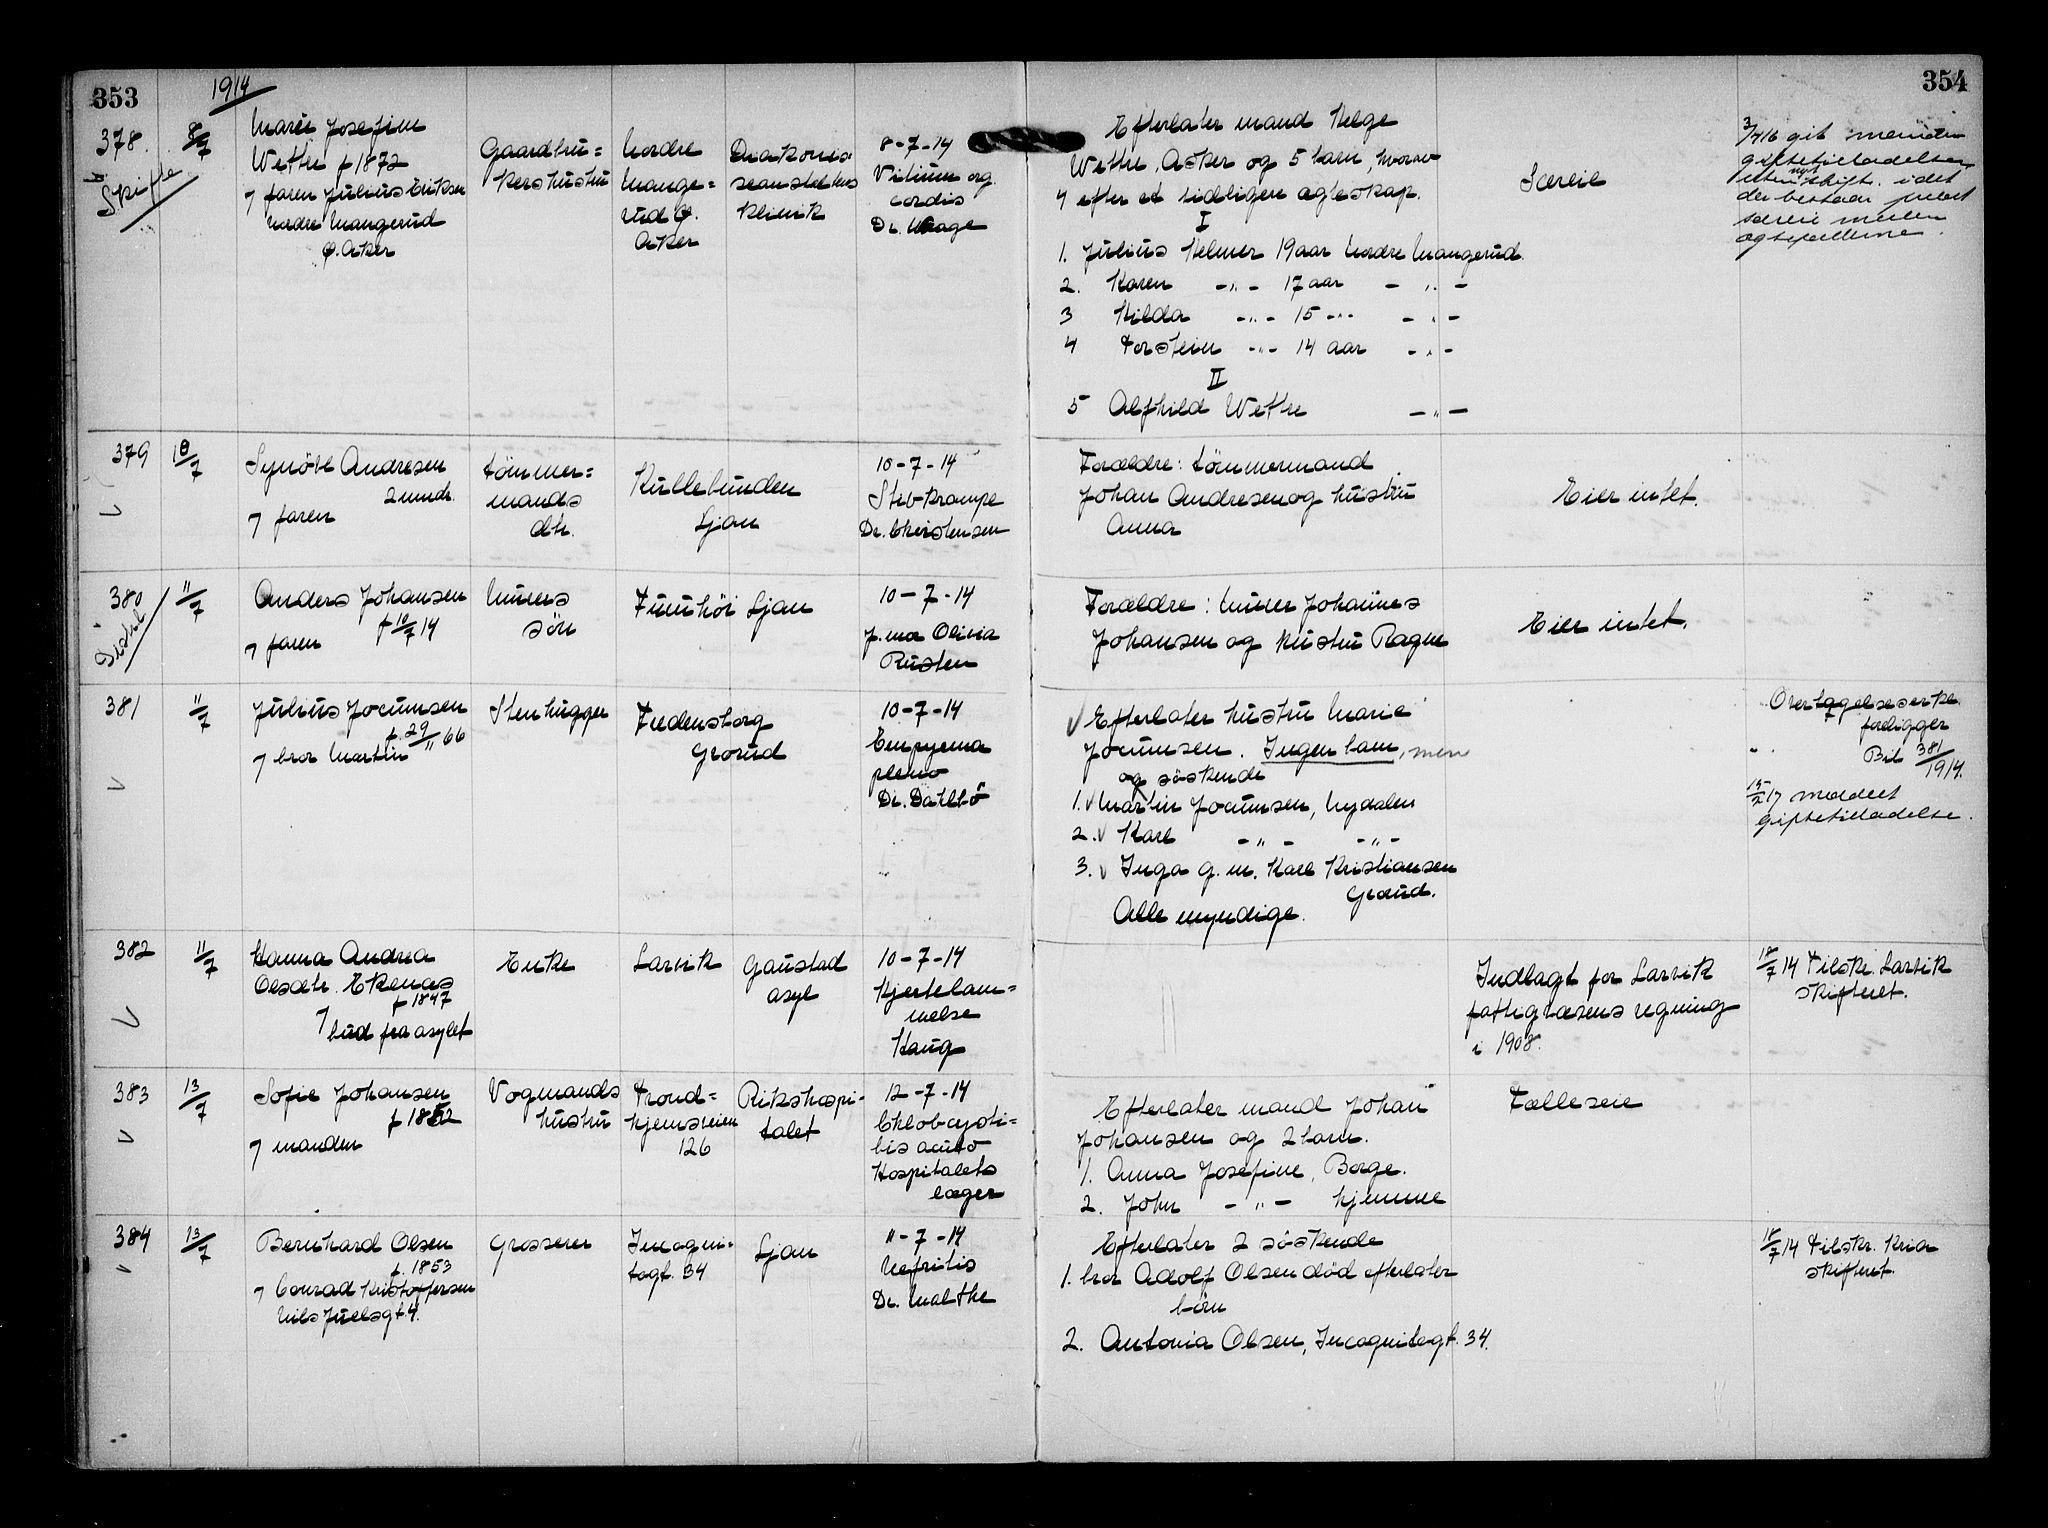 353
1914
354
378.
8/7
Skifte
Marie Josefine
Wettre f 1872
faren Julius Eriksen
nordre Mangerud
Ø. Aker
Gaardbru=
kershustru
Nordre
Mange=
rud Ø.
Aker
Diakonis=
seanstaltens
klinik
8-7-14
Vitium org.
cordis
Dr. Waage
Efterlater mand Helge
Wettre, Asker og 5 barn, hvorav
4 efter et tidligere egteskap.
I
1. Julius Helmer 19 aar Nordre Mangerud.
2. Karen -„- 17 aar - „ -
3 Hilda -„- 15 -„- - „ -
4 Torstein -„- 14 aar - „ -
II
5 Alfhild Wettre - „ -
Særeie
3/7 16 git manden
giftetilladelse
uten skift. idet
nyt
der bestaar
særeie mellem
egtefællerne.
379
10/7
Synöve Andresen
2 mndr.
faren
tömmer=
mands
dtr.
Kullebunden
Ljan
10-7-14
Strubkrampe
Dr. Christensen
Forældre: tömmermand
Johan Andresen og hustru
Anna
Eier intet.
380
11/7
Anders Johansen
f 10/7 14
faren
Murers
sön
Furuhöi Ljan
10-7-14
j. mor Olivia
Rusten
Forældre: Murer Johannes
Johansen og hustru Ragna
Eier intet.
381
11/7
Julius Jocumsen
f. 29/11 66
bror Martin
Stenhugger
Fredensborg
Grorud
10-7-14
Empyema
pleuro
Dr. Dahlbö
Efterlater hustru Marie
Jocumsen. Ingen barn, men
og söskende
1. Martin Jocumsen, Nydalen
2. Karl - „ - - „ -
3. Inga g. m. Karl Kristiansen
Grorud.
Alle myndige.
Overtagelseserkl.
foreligger
Bil 381/1914.
15/2 17 meddelt
giftetilladelse.
382
11/7
Hanna Andrea
Olsdtr. Ekenæs
f 1847
bud fra asylet
Enke
Larvik
Gaustad
asyl
10-7-14
Hjertelam=
melse
Haug
Indlagt for Larvik
fattigvæsens regning
i 1908.
18/7 14 Tilskr. Larvik
skifteret.
383
13/7
Sofie Johansen
f 1852
manden
Vogmands
hustru
Trond=
hjemsveien
126
Rikshospi=
talet
12-7-14
Chlobcysti=
tis acuto
Hospitalets
læger
Efterlater mand Johan
Johansen og 2 barn.
1. Anna Josefine, Borge.
2. John - „ - hjemme
Fælleseie
384
13/7
Bernhard Olsen
f. 1853
Conrad Kristoffersen
Nils Juelsgt 4.
Grosserer
Incogni=
togt. 34
Ljan
11-7-14
Nefritis
Dr. Malthe
Efterlater 2 söskende
1. bror Adolf Olsen död efterlater
börn
2. Antonia Olsen, Incognitogt. 34.
18/7 14 Tilskr. Kria
skifteret.